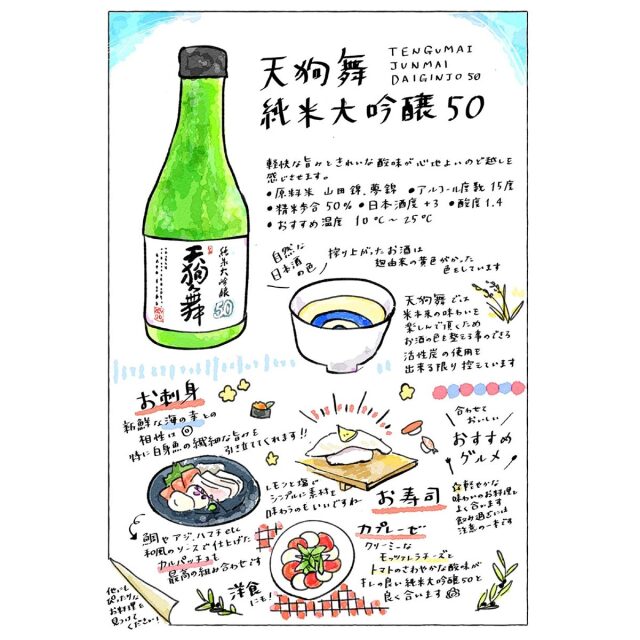 天狗舞
純米大吟醸50
TENGUMAI
JUNMAI
DAIGINJO 50
軽快な旨みときれいな酸味が心地よいのど越しを
感じさせます。
●原料米 山田錦、夢錦 ●アルコール度数 15度
●精米歩合 50% ●日本酒度 +3 ●酸度 1.4
●おすすめ温度 10℃~25℃
純米大吟醸
50
天狗舞
自然な
日本酒の色
搾り上がったお酒は
麹由来の黄色がかった
色をしています
天狗舞では
米本来の味わいを
楽しんで頂くため
お酒の色を整える事のできる
活性炭の使用を
出来る限り控えています
お刺身
新鮮な海の幸との
相性は◎
特に白身魚の繊細な旨みを
引き立ててくれます!!
鯛やアジ、ハマチetc
和風のソースで仕上げた
カルパッチョも
最高の組み合わせです
レモンと塩で
シンプルに素材を
味わうのもいいですね
お寿司
合わせて
おいしい
おすすめ
グルメ
☆軽やかな
味わいのお料理と
よく合います
飲み過ぎには
注意の一本です
洋食
にも!
カプレーゼ
クリーミーな
モッツァレラチーズと
トマトのさわやかな酸味が
キレの良い純米大吟醸50と
良く合います
他にも
ぴったりな
お料理を
見つけて
ください!